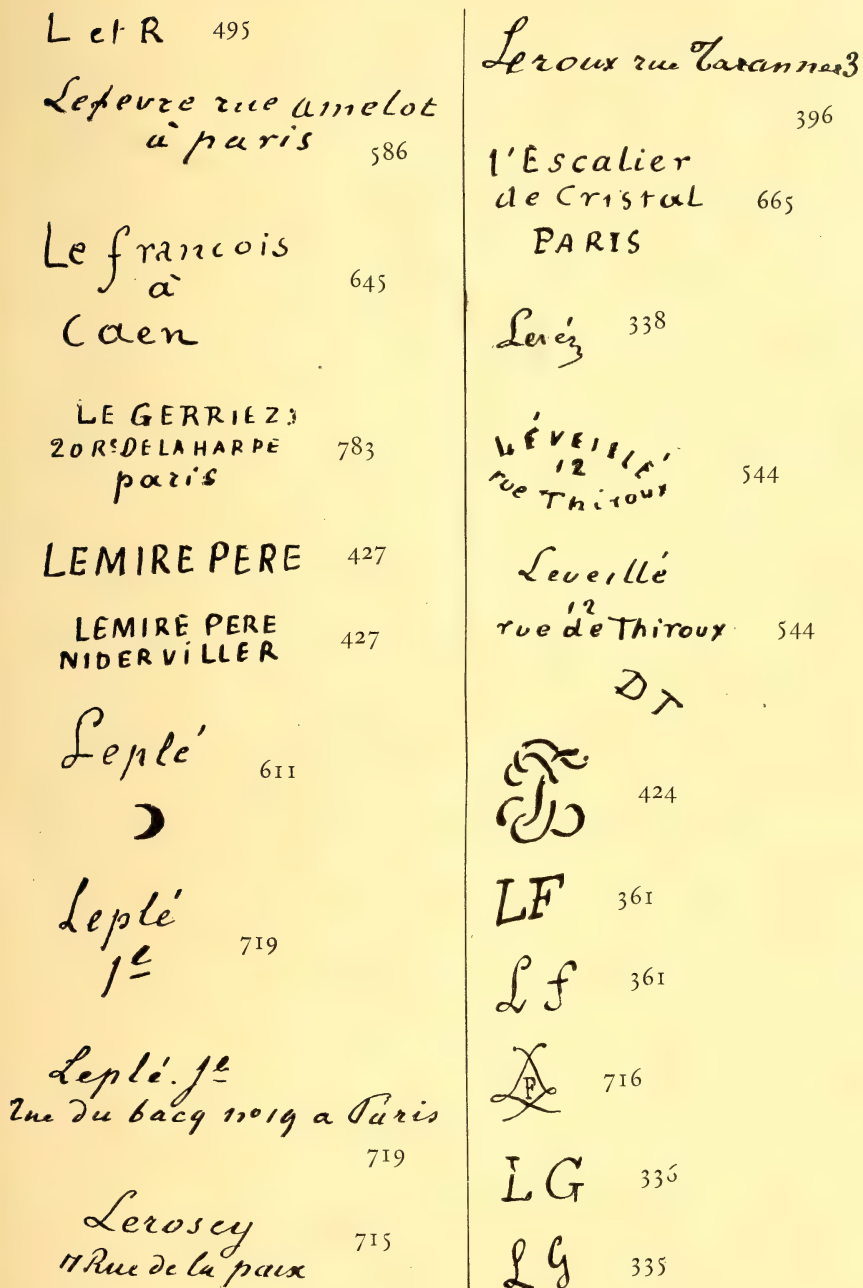 L et R 495
Lefevre rue amelot
à paris 586
Le francois
à 645
Caen
LE GERRIEZ
20 Rᵉ DE LA HARPE 783
paris
LEMIRE PERE 427
LEMIRE PERE
NIDERVILLER 427
Leplé 611
Leplé
Jᵉ 719
Leplé. Jᵉ
Rue du bacq nº 19 a Paris
719
Lerosey 715
Rue de la paix
Leroux rue Tarannes 3
396
l'Escalier
de Cristal 665
PARIS
338
LÉVEILLÉ
12 544
rue Thiroux
Leveillé
12
rue de Thiroux 544
DT
424
LF 361
Lf 361
716
LG
LG 335